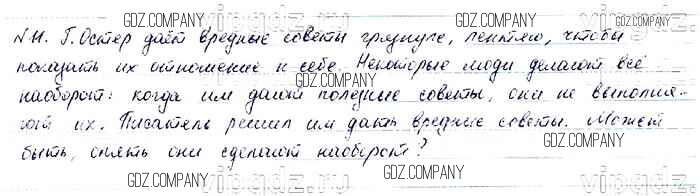 N 11. Г. Остер даёт вредные советы грязнуле, лентяю, чтобы
показать их отношение к себе. Некоторые люди делают всё
наоборот: когда им дают полезные советы, они не выполня-
ют их. Писатель решил им дать вредные советы. Может
быть, опять они сделают наоборот?
GDZ.COMPANY
GDZ.COMPANY
GDZ.COMPANY
GDZ.COMPANY
GDZ.COMPANY
GDZ.COMPANY
GDZ.COMPANY
vipgdz.ru